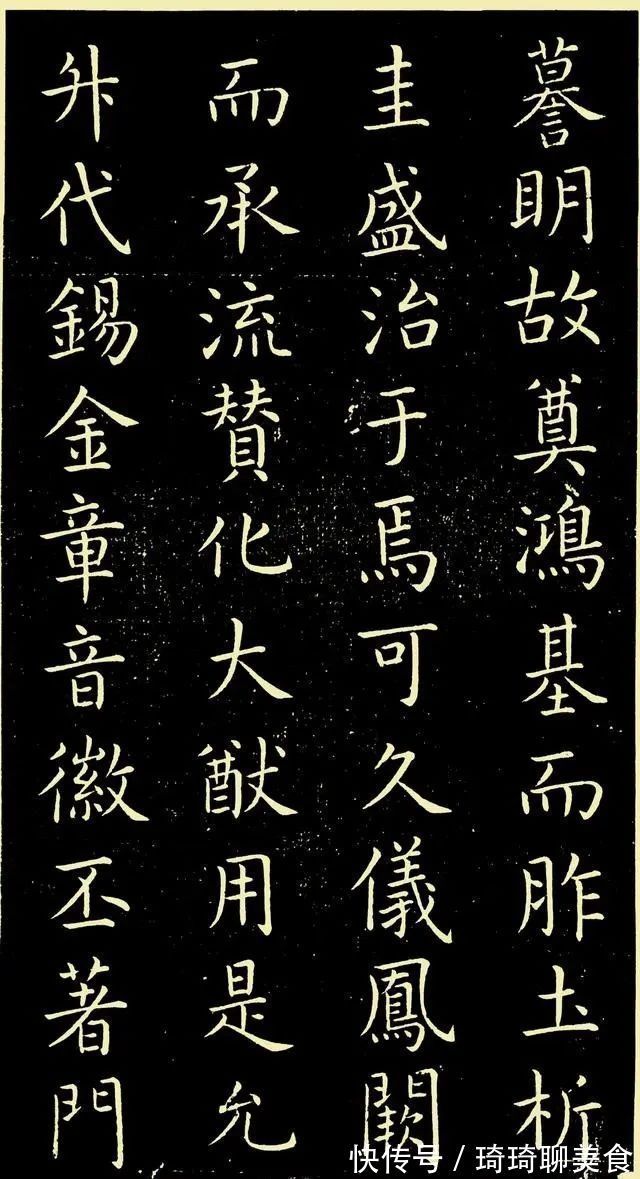 謩明故奠鴻基而胙土析
圭盛治于焉可久儀鳳闕
而承流賛化大猷用是允
升代錫金章音徽丕著門
快传号 / 琦琦聊美食